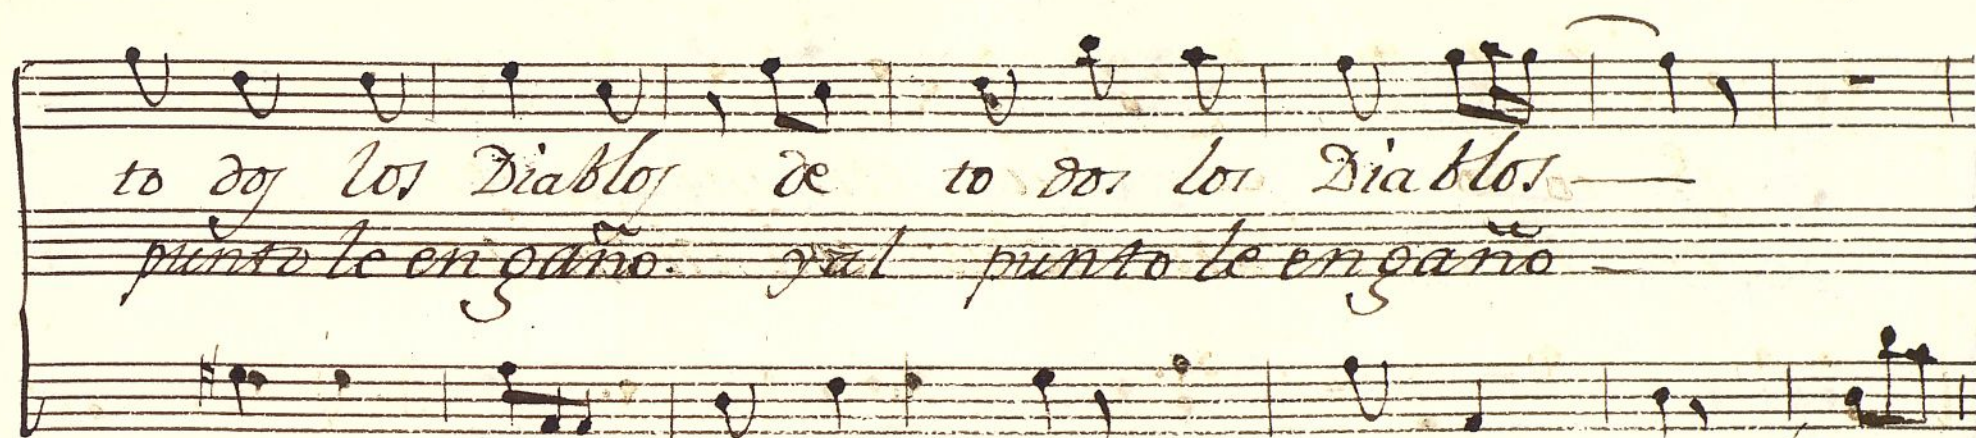 to dos los Diablos de to dos los Diablos
punto le en gaño. yal punto le en gaño